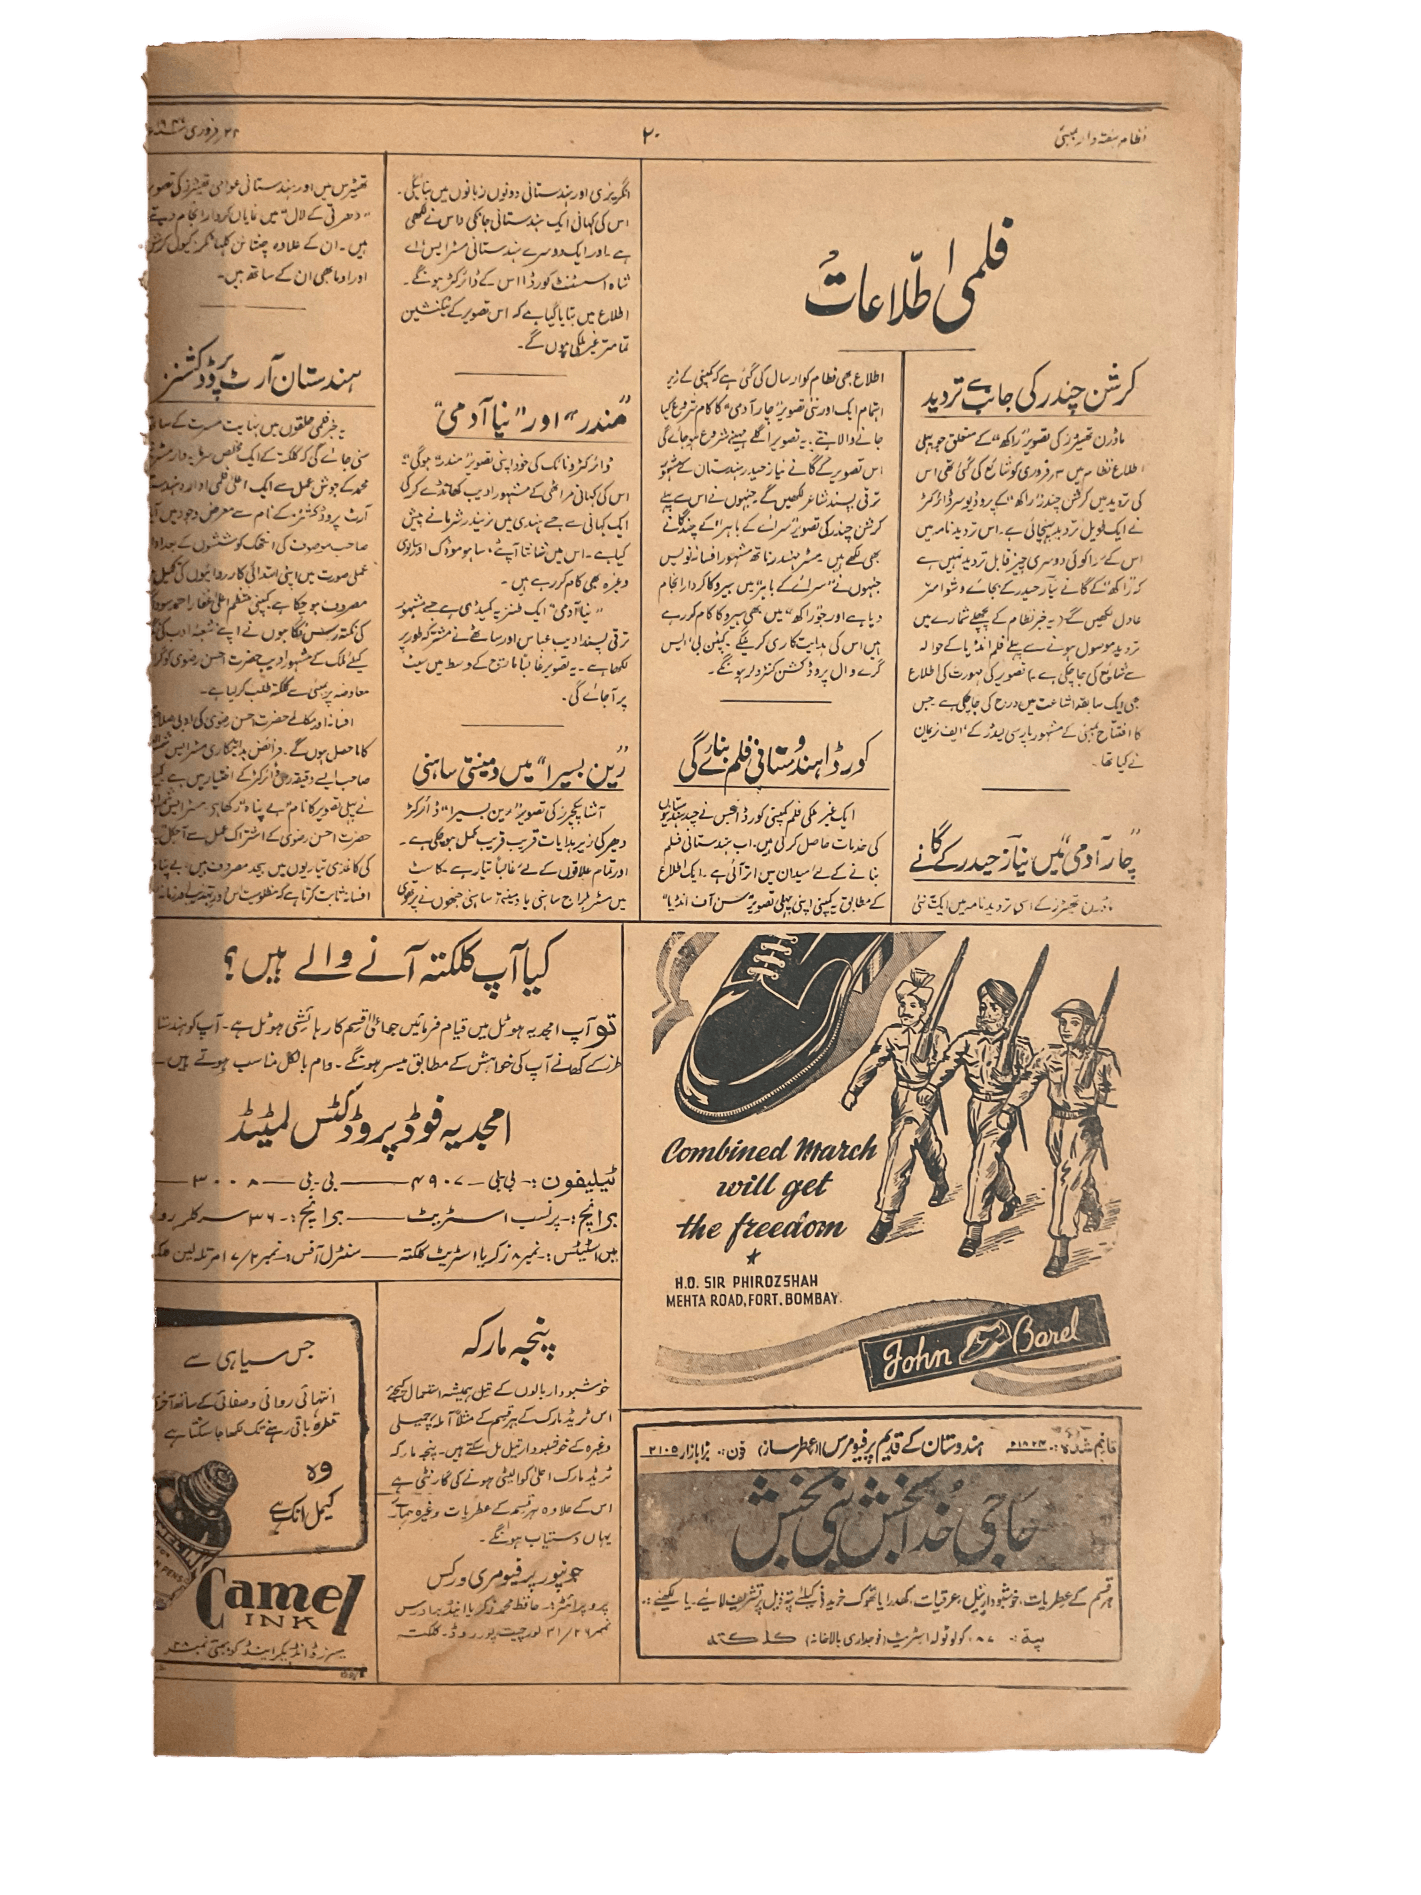 نظام ہفتہ وار بمبئی
۲۰
۲۴ر فروری ۱۹۴۶ء
فلمی اطلاعات
کرشن چندر کی جانب سے تردید
ماڈرن تھیٹرز کی تصویر "راکھ" کے متعلق جو پہلی
اطلاع نظام میں ۳ر فروری کو شائع کی گئی تھی اس
کی تردید میں کرشن چندر "راکھ" کے پروڈیوسر ڈائرکٹر
نے ایک طویل تردید بھیجی ہے۔ اس تردید نامہ میں
اس کے سوا کوئی دوسری چیز قابل تردید نہیں ہے
کہ "راکھ" کے گانے نیاز حیدر کے بجائے وشوامتر
عادل لکھیں گے (یہ خبر نظام کے پچھلے شمارے میں
تردید موصول ہونے سے پہلے فلم انڈیا کے حوالہ
سے شائع کی جا چکی ہے) تصویر کی مہورت کی اطلاع
بھی ایک سابقہ اشاعت میں درج کی جا چکی ہے جس
کا افتتاح بمبئی کے مشہور پارسی لیڈر کے ایف نریمان
نے کیا تھا۔
"چار آدمی" میں نیاز حیدر کے گانے
ماڈرن تھیٹرز کے اسی تردید نامہ میں ایک نئی
اطلاع بھی نظام کو ارسال کی گئی ہے کہ کمپنی کے زیر
اہتمام ایک اور نئی تصویر "چار آدمی" کا کام شروع کیا
جانے والا ہے۔ یہ تصویر اگلے مہینے شروع ہو جائے گی
اس تصویر کے گانے نیاز حیدر ہندستان کے مشہور
ترقی پسند شاعر لکھیں گے جنہوں نے اس سے پہلے
کرشن چندر کی تصویر "سرائے کے باہر" کے چند گانے
بھی لکھے ہیں۔ مسٹر مہندر ناتھ مشہور افسانہ نویس
جنہوں نے "سرائے کے باہر" میں ہیرو کا کردار انجام
دیا ہے اور جو "راکھ" میں بھی ہیرو کا کام کر رہے
ہیں اس کی ہدایت کاری کرینگے۔ کیپٹن بی ایس
گرے وال پروڈکشن کنٹرولر ہونگے۔
کورڈا ہندوستانی فلم بنائے گی
ایک غیر ملکی فلم کمپنی کورڈا جس نے چند ہندستانیوں
کی خدمات حاصل کر لی ہیں، اب ہندستانی فلم
بنانے کے لئے میدان میں اتر آئی ہے۔ ایک اطلاع
کے مطابق یہ کمپنی اپنی پہلی تصویر "سن آف انڈیا"
انگریزی اور ہندستانی دونوں زبانوں میں بنائیگی۔
اس کی کہانی ایک ہندستانی جانکی داس نے لکھی
ہے۔ اور ایک دوسرے ہندستانی مسٹر ایس اے
شاہ اسسٹنٹ کورڈا اس کے ڈائرکٹر ہونگے۔
اطلاع میں بتایا گیا ہے کہ اس تصویر کے ٹیکنیشین
تمامتر غیر ملکی ہوں گے۔
"مندر" اور "نیا آدمی"
ڈائرکٹر ونائک کی خود اپنی تصویر "مندر" ہوگی
اس کی کہانی مراٹھی کے مشہور ادیب کھانڈے کر کی
ایک کہانی سے جسے ہندی میں نریندر شرما نے پیش
کیا ہے۔ اس میں شانتا آپٹے، ساہو مودک اور
وغیرہ بھی کام کر رہے ہیں۔
"نیا آدمی" ایک طنزیہ کمیڈی ہے جسے مشہور
ترقی پسند ادیب عباس اور ساٹھے نے مشترکہ طور پر
لکھا ہے۔ یہ تصویر غالباً مارچ کے وسط میں سیٹ
پر آجائے گی۔
"رین بسیرا" میں دمینتی ساہنی
آشا پکچرز کی تصویر "رین بسیرا" ڈائرکٹر
دھیر کی زیر ہدایات قریب قریب مکمل ہو چکی ہے۔
اور تمام علاقوں کے لئے غالباً تیار ہے۔ کاسٹ
میں مسٹر بلراج ساہنی یا دمینتی ساہنی جنھوں نے
تھیٹرس میں اور ہندستانی عوامی تھیٹرز کی تصویر
"دھرتی کے لال" میں نمایاں کردار انجام دیئے
ہیں۔ ان کے علاوہ
اور اوما بھی ان کے ساتھ ہیں۔
ہندستان آرٹ پروڈکشنز
یہ خبر فلمی حلقوں میں نہایت مسرت کے ساتھ
سنی جائے گی کہ کلکتہ کے ایک مخلص سرمایہ دار
محمد کے جوش عمل سے ایک اعلیٰ فلمی ادارہ
آرٹ پروڈکشنز کے نام سے معرض وجود میں
صاحب موصوف کی انتھک کوششوں کے بعد
عملی صورت میں اپنی ابتدائی کارروائیوں کی تکمیل
مصروف ہو چکا ہے۔ کمپنی منتظم اعلیٰ غفار احمد
کی نکتہ رس نگاہوں نے اپنے شعبۂ ادب
کیلئے ملک کے مشہور ادیب حضرت احسن رضوی کو
معاوضہ پر بمبئی سے کلکتہ طلب کر لیا ہے۔
افسانہ اور مکالمے حضرت احسن رضوی کی ادبی
کا ماحصل ہوں گے۔ فرائض ہدایتکاری مسٹر ایس
صاحب ایسے دقیقہ رس ڈائرکٹر کے اختیار میں ہے
نے پہلی تصویر کا نام "بے پناہ" رکھا ہے۔
حضرت احسن رضوی کے اشتراک عمل سے آجکل
کی کاغذی تیاریوں میں بیحد مصروف ہیں۔
افسانہ ثابت کرتا ہے کہ مظلومیت
کیا آپ کلکتہ آنے والے ہیں؟
تو آپ امجدیہ ہوٹل میں قیام فرمائیں جو اعلیٰ قسم کا رہائشی ہوٹل ہے۔ آپ کو
طرز کے کھانے آپ کی خواہش کے مطابق میسر ہونگے۔ دام بالکل مناسب ہوتے ہیں۔
امجدیہ فوڈ پروڈکٹس لمیٹیڈ
ٹیلیفون:۔ بی بی ۔ ۴۹۰۷ بی۔ بی ۳۰۰۸
برانچ:۔ پرنسب اسٹریٹ برانچ:۔ ۳۶ سرکلر روڈ
نمبر ۸ زکریا اسٹریٹ کلکتہ سنٹرل آفس:۔ نمبر ۱۷/۲
Combined March
will get
the freedom
H.O. SIR PHIROZSHAH
MEHTA ROAD, FORT. BOMBAY.
John Barel
پنجہ مارکہ
خوشبودار بالوں کے تیل ہمیشہ استعمال کیجئے
اس ٹریڈ مارک کے ہر قسم کے مثلاً آملہ و چمیلی
وغیرہ کے خوشبودار تیل مل سکتے ہیں۔ پنجہ مارکہ
ٹریڈ مارک اعلیٰ کوالیٹی ہونے کی گارنٹی ہے
اس کے علاوہ ہر قسم کے عطریات وغیرہ ہمارے
یہاں دستیاب ہونگے۔
جونپور پرفیومری ورکس
پروپرائٹر:۔ حافظ محمد زکریا اینڈ برادرس
نمبر ۳۱/۲۶ لور چیت پور روڈ۔ کلکتہ
جس سیاہی سے
انتہائی روانی و صفائی کے ساتھ آخری
قطرہ باقی رہنے تک لکھا جا سکتا ہے
وہ
کیمل انک ہے
Camel
INK
قائم شدہ:۔ ۲۱۸۲۳ ہندوستان کے قدیم پرفیومرس (عطر ساز) فون:۔ بڑا بازار ۲۱۰۵
حاجی خدا بخش نبی بخش
ہر قسم کے عطریات، خوشبودار تیل، عرقیات، کھدرا یا تھوک خریدنے کیلئے پتہ ذیل پر تشریف لائیے۔ یا لکھیئے:۔
پتہ:۔ ۸۷ کولوٹولہ اسٹریٹ (فوجداری بالاخانہ) کلکتہ